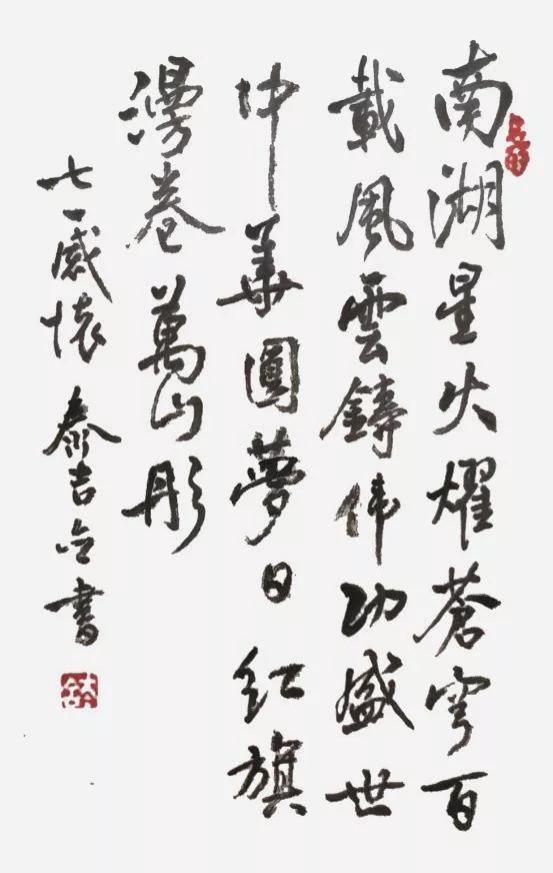 南湖星火耀蒼穹百
載風雲鑄偉功盛世
中華圓夢日紅旗
漫卷萬山彤
七一感懷 泰吉合書